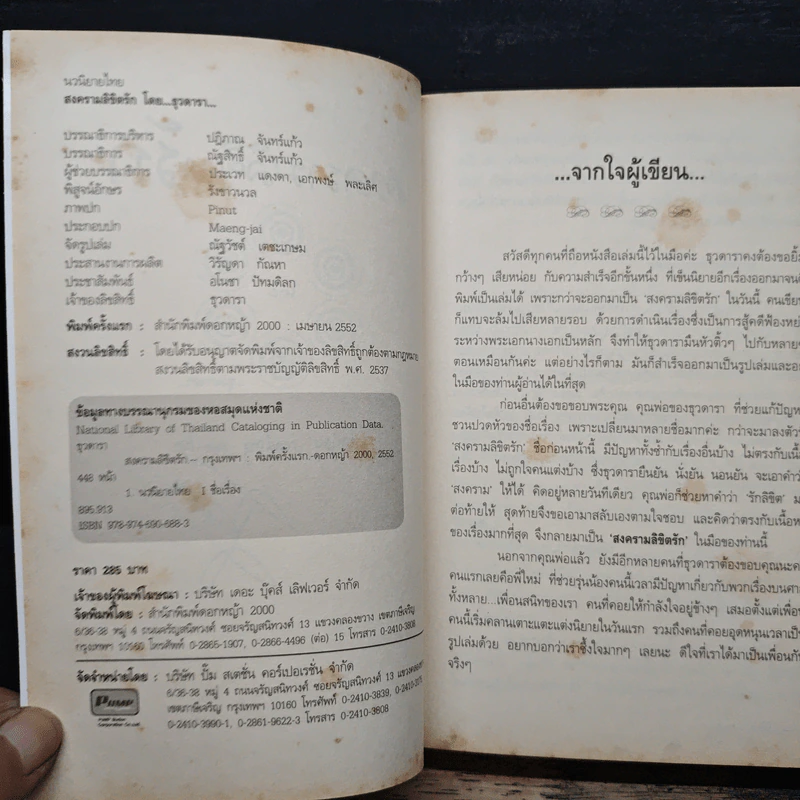 นวนิยายไทย
สงครามลิขิตรัก โดย...ธุวดารา...
บรรณาธิการบริหาร ปฏิภาณ จันทร์แก้ว
บรรณาธิการ ณัฐสิทธิ์ จันทร์แก้ว
ผู้ช่วยบรรณาธิการ ประเวท แดงดา, เอกพงษ์ พละเลิศ
พิสูจน์อักษร รังชาวนวล
ภาพปก Pinut
ประกอบปก Maeng-jai
จัดรูปเล่ม ณัฐวัชต์ เตชะเกษม
ประสานงานการผลิต วิรัญดา กัณหา
ประชาสัมพันธ์ อโนชา ปัทมดิลก
เจ้าของลิขสิทธิ์ ธุวดารา
พิมพ์ครั้งแรก : สำนักพิมพ์ดอกหญ้า 2000 : เมษายน 2552
สงวนลิขสิทธิ์ : โดยได้รับอนุญาตจัดพิมพ์จากเจ้าของลิขสิทธิ์ถูกต้องตามกฎหมาย
สงวนลิขสิทธิ์ตามพระราชบัญญัติลิขสิทธิ์ พ.ศ. 2537
ข้อมูลทางบรรณานุกรมของหอสมุดแห่งชาติ
National Library of Thailand Cataloging in Publication Data.
ธุวดารา
สงครามลิขิตรัก -- กรุงเทพฯ : พิมพ์ครั้งแรก.-ดอกหญ้า 2000, 2552
448 หน้า
1. นวนิยายไทย I ชื่อเรื่อง
895.913
ISBN 978-974-690-688-3
ราคา 285 บาท
เจ้าของผู้พิมพ์โฆษณา : บริษัท เดอะ บุ๊คส์ เลิฟเวอร์ จำกัด
จัดพิมพ์โดย : สำนักพิมพ์ดอกหญ้า 2000
6/36-38 หมู่ 4 ถนนจรัญสนิทวงศ์ ซอยจรัญสนิทวงศ์ 13 แขวงคลองขวาง เขตภาษีเจริญ
กรุงเทพฯ 10160 โทร 0-2865-1907, 0-2866-4496 (ต่อ) 15 โทรสาร 0-2410-3808
จัดจำหน่ายโดย : บริษัท ปั๊ม สเตชั่น คอร์เปอเรชั่น จำกัด
6/36-38 หมู่ 4 ถนนจรัญสนิทวงศ์ ซอยจรัญสนิทวงศ์ 13 แขวงคลองขวาง
เขตภาษีเจริญ กรุงเทพฯ 10160 โทร 0-2410-3839, 0-2410-2075
0-2410-3990-1, 0-2861-9622-3 โทรสาร 0-2410-3808
PUMP
...จากใจผู้เขียน...
สวัสดีทุกคนที่ถือหนังสือเล่มนี้ไว้ในมือค่ะ ธุวดาราคงต้องขอยิ้ม
กว้างๆ เสียหน่อย กับความสำเร็จอีกขั้นหนึ่ง ที่เข็นนิยายอีกเรื่องออกมาจน
พิมพ์เป็นเล่มได้ เพราะกว่าจะออกมาเป็น 'สงครามลิขิตรัก' ในวันนี้ คนเขียน
ก็แทบจะล้มไปเสียหลายรอบ ด้วยการดำเนินเรื่องซึ่งเป็นการสู้คดีฟ้องหย่า
ระหว่างพระเอกนางเอกเป็นหลัก จึงทำให้ธุวดารามึนหัวติ้วๆ ไปกับหลายๆ
ตอนเหมือนกันค่ะ แต่อย่างไรก็ตาม มันก็สำเร็จออกมาเป็นรูปเล่มและ
ในมือของท่านผู้อ่านได้ในที่สุด
ก่อนอื่นต้องขอขอบพระคุณ คุณพ่อของธุวดารา ที่ช่วยแก้ปัญหา
ชวนปวดหัวของชื่อเรื่อง เพราะเปลี่ยนมาหลายชื่อมากค่ะ กว่าจะมาลงตัว
'สงครามลิขิตรัก' ชื่อก่อนหน้านี้ มีปัญหาทั้งซ้ำกับเรื่องอื่นบ้าง ไม่ตรงกับเนื้อ
เรื่องบ้าง ไม่ถูกใจคนแต่งบ้าง ซึ่งธุวดารายืนยัน นั่งยัน นอนยัน จะเอาคำว่า
'สงคราม' ให้ได้ คิดอยู่หลายวันทีเดียว คุณพ่อก็ช่วยหาคำว่า 'รักลิขิต' ม
ต่อท้ายให้ สุดท้ายจึงขอเอามาสลับเองตามใจชอบ และคิดว่าตรงกับเนื้อห
ของเรื่องมากที่สุด จึงกลายมาเป็น 'สงครามลิขิตรัก' ในมือของท่านนี้
นอกจากคุณพ่อแล้ว ยังมีอีกหลายคนที่ธุวดาราต้องขอบคุณนะค
คนแรกเลยคือพี่ใหม่ ที่ช่วยรุ่นน้องคนนี้เวลามีปัญหาเกี่ยวกับพวกเรื่องบนศา
ทั้งหลาย...เพื่อนสนิทของเรา คนที่คอยให้กำลังใจอยู่ข้างๆ เสมอตั้งแต่เพื่อน
คนนี้เริ่มคลานเตาะแตะแต่งนิยายในวันแรก รวมถึงคนที่คอยอุดหนุนเวลาเป็น
รูปเล่มด้วย อยากบอกว่าเราซึ้งใจมากๆ เลยนะ ดีใจที่เราได้มาเป็นเพื่อนกัน
จริงๆ